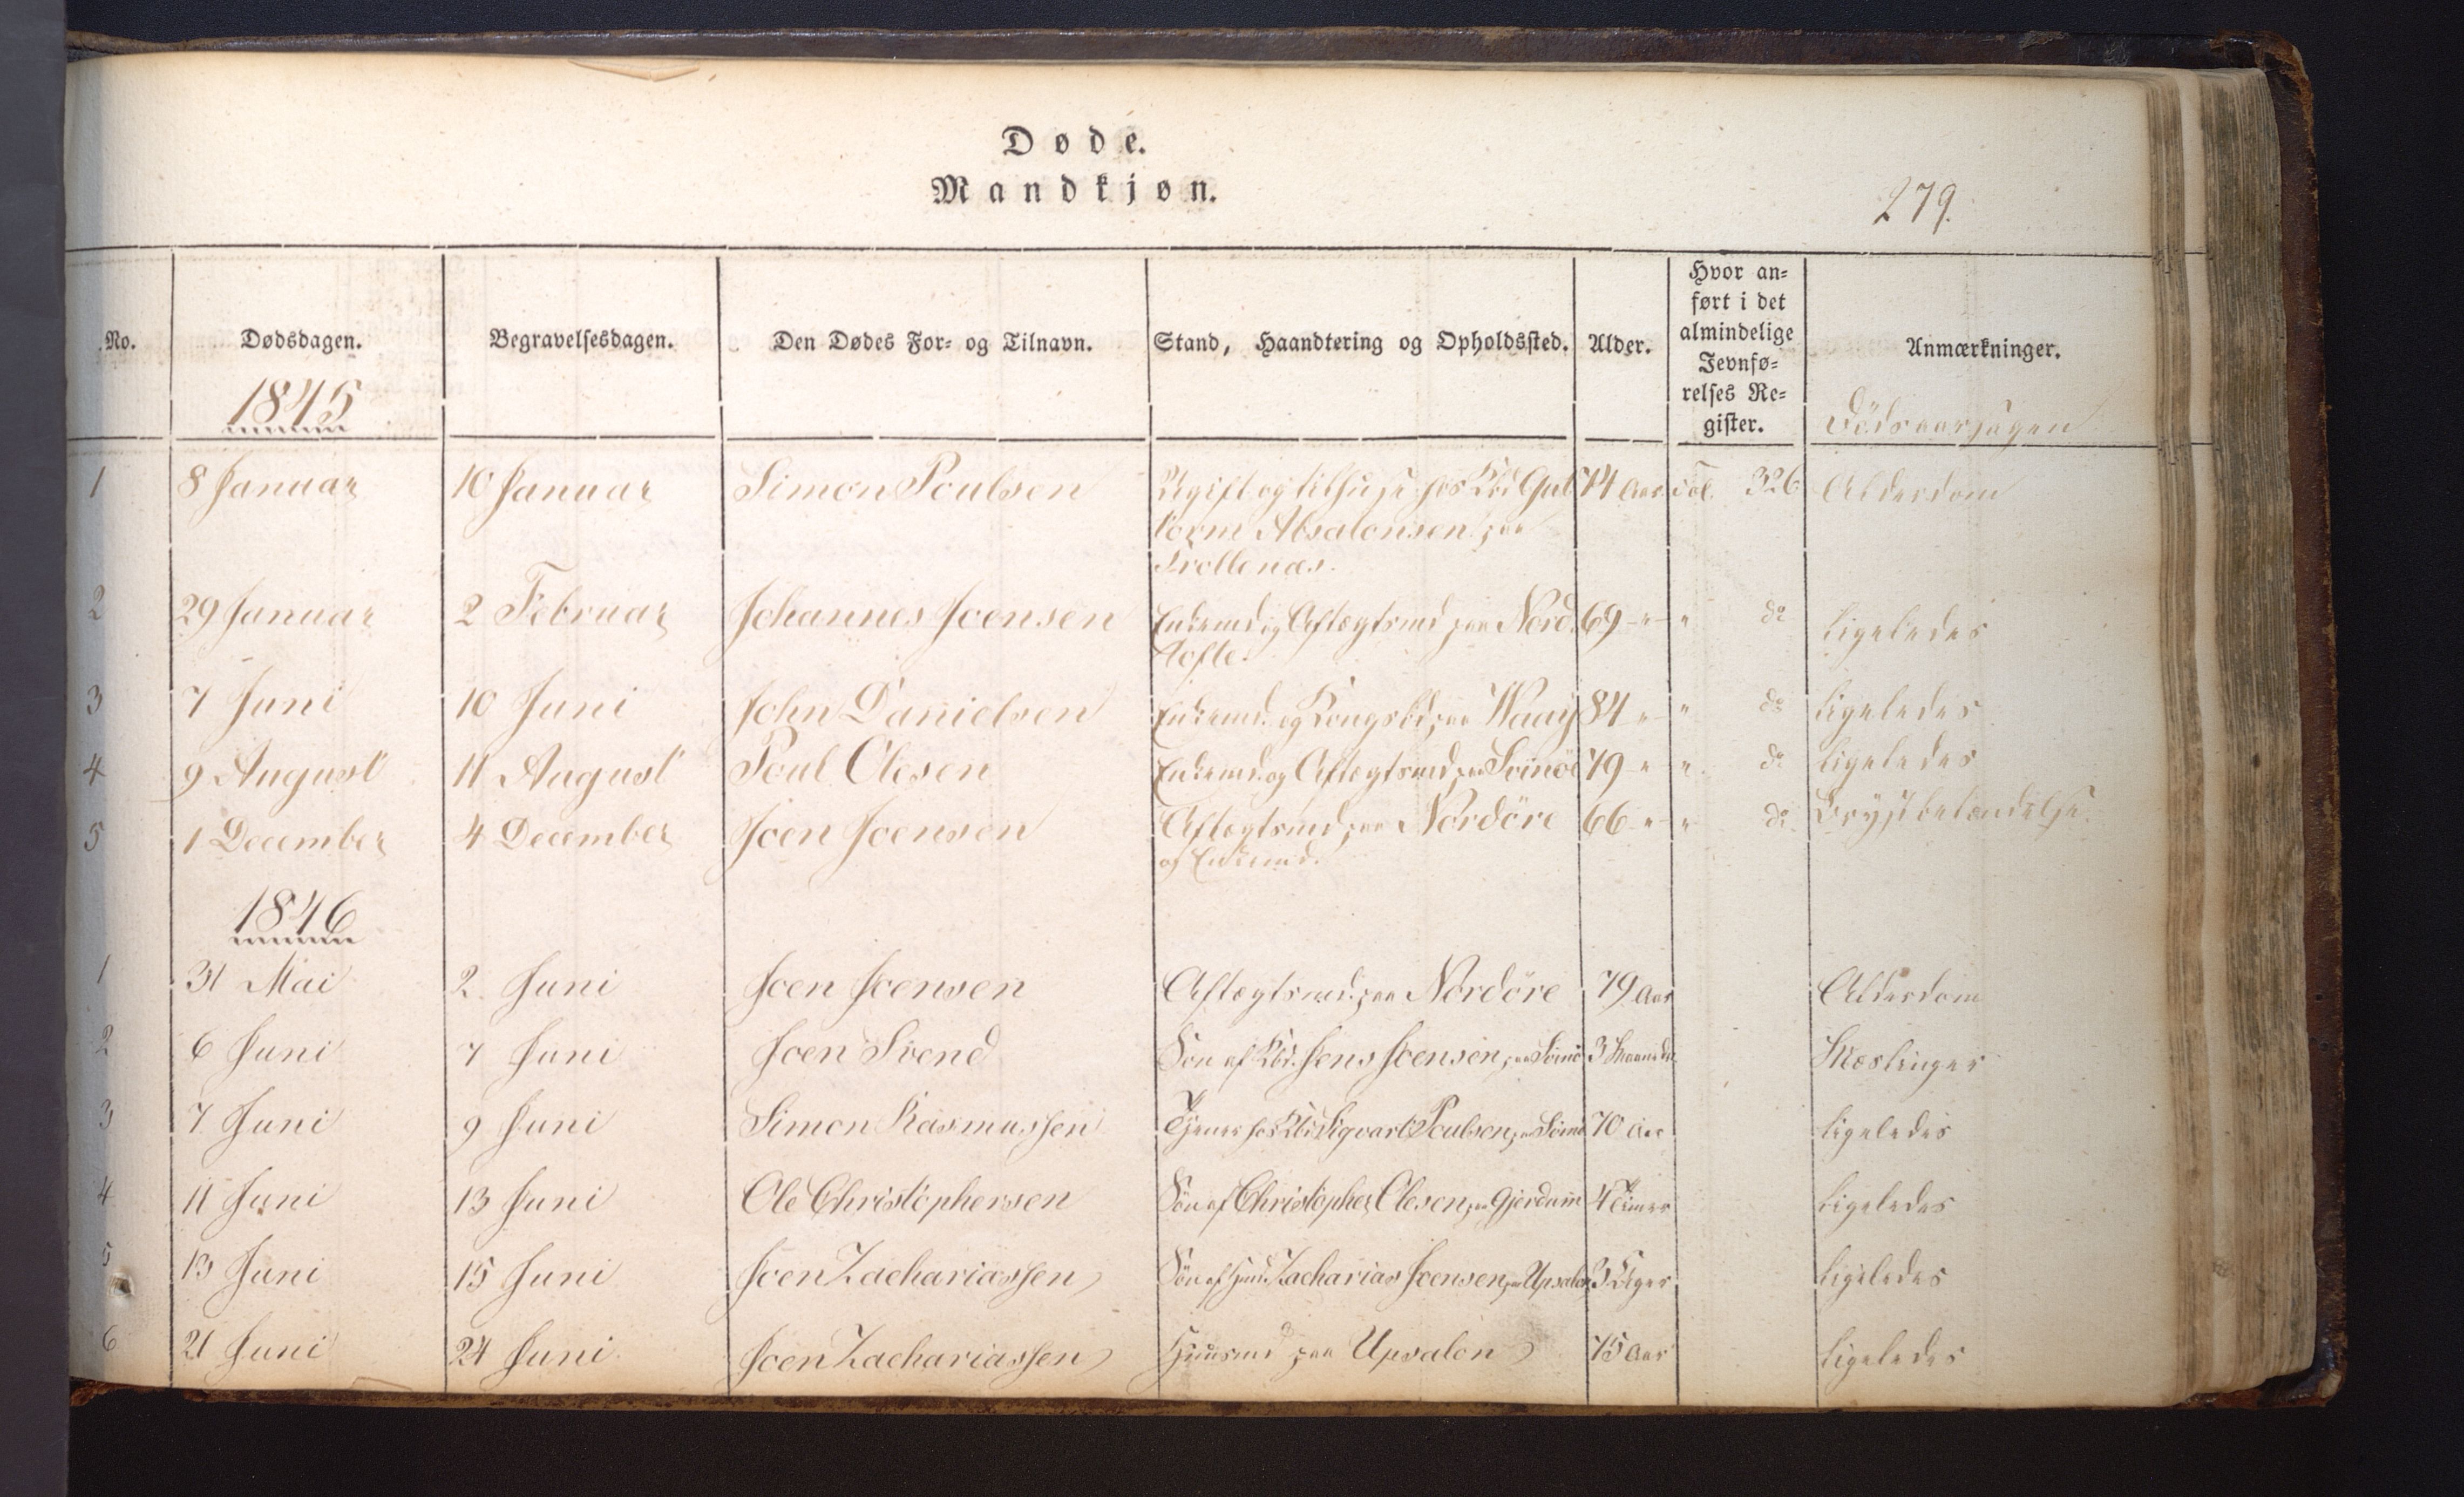 Døde.
Mandkjøn.
279.
No. Dødsdagen. Begravelsesdagen. Den Dødes For- og Tilnavn. Stand, Haandtering og Opholdssted. Alder. Hvor an-
ført i det
almindelige
Jevnfø-
relses Re-
gister. Anmærkninger.
1845 Dödsaarsagen
1 8 Januar 10 Januar Simon Poulsen Ugift og tilhuse hos Kbd Gut 74 Aar. Fol. 326 Alderdom
torm Absalonsen paa
Trollenæs.
2 29 Januar 2 Februar Johannes Joensen Enkemd og Aftægtsmd paa Nord. 69 -"- " do ligeledes
tofte.
3 7 Juni 10 Juni John Danielsen Enkemd. og Kongsbd paa Waag 84 " " do ligeledes
4 9 August 11 August Poul Olesen Enkemd. og Aftægtsmd paa Svinöe 79 " " do ligeledes
5 1 December 4 December Joen Joensen Aftægtsmd paa Nordöre 66 " " do Brystbetændelse.
og Enkemd.
1846
1 31 Mai 2. Juni Joen Joensen Aftægtsmd. paa Nordöre 79 Aar Alderdom
2 6 Juni 7 Juni Joen Svend Sön af Kbd. Jens Joensen paa Svinö 3 Maaneder Mæslinger
3 7 Juni 9 Juni Simon Rasmussen Tjener hos Kbd Sigvart Poulsen paa Svinö 70 Aar ligeledes
4 11 Juni 13 Juni Ole Christophersen Sön af Christopher Olesen paa Gjerdum 4 Timer ligeledes
5 13 Juni 15 Juni Joen Zachariassen Sön af Huusmd. Zacharias Joensen paa Upsalon 3 Uger ligeledes
6 21 Juni 24 Juni Joen Zachariassen Huusmd paa Upsalon 75 Aar ligeledes